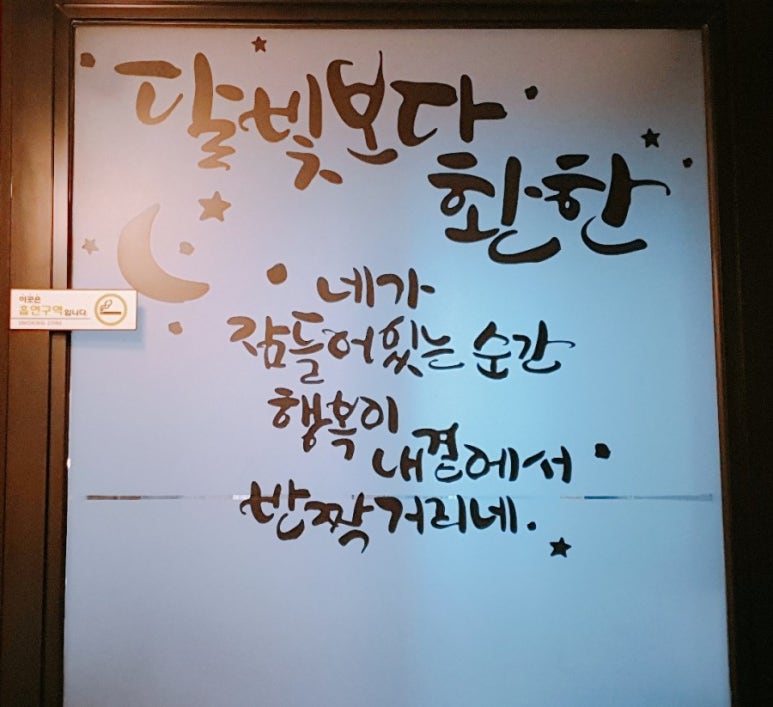 달빛보다
환한
네가
잠들어있는 순간
행복이
내곁에서
반짝거리네.
이곳은
흡연구역입니다.
SMOKING ZONE